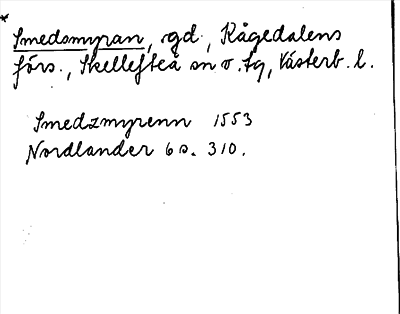 Smedsmyran, gd, Kågedalens
förs., Skellefteå sn o. tg, Västerb. l.
Smedzmyrenn 1553
Nordlander 6 s. 310.